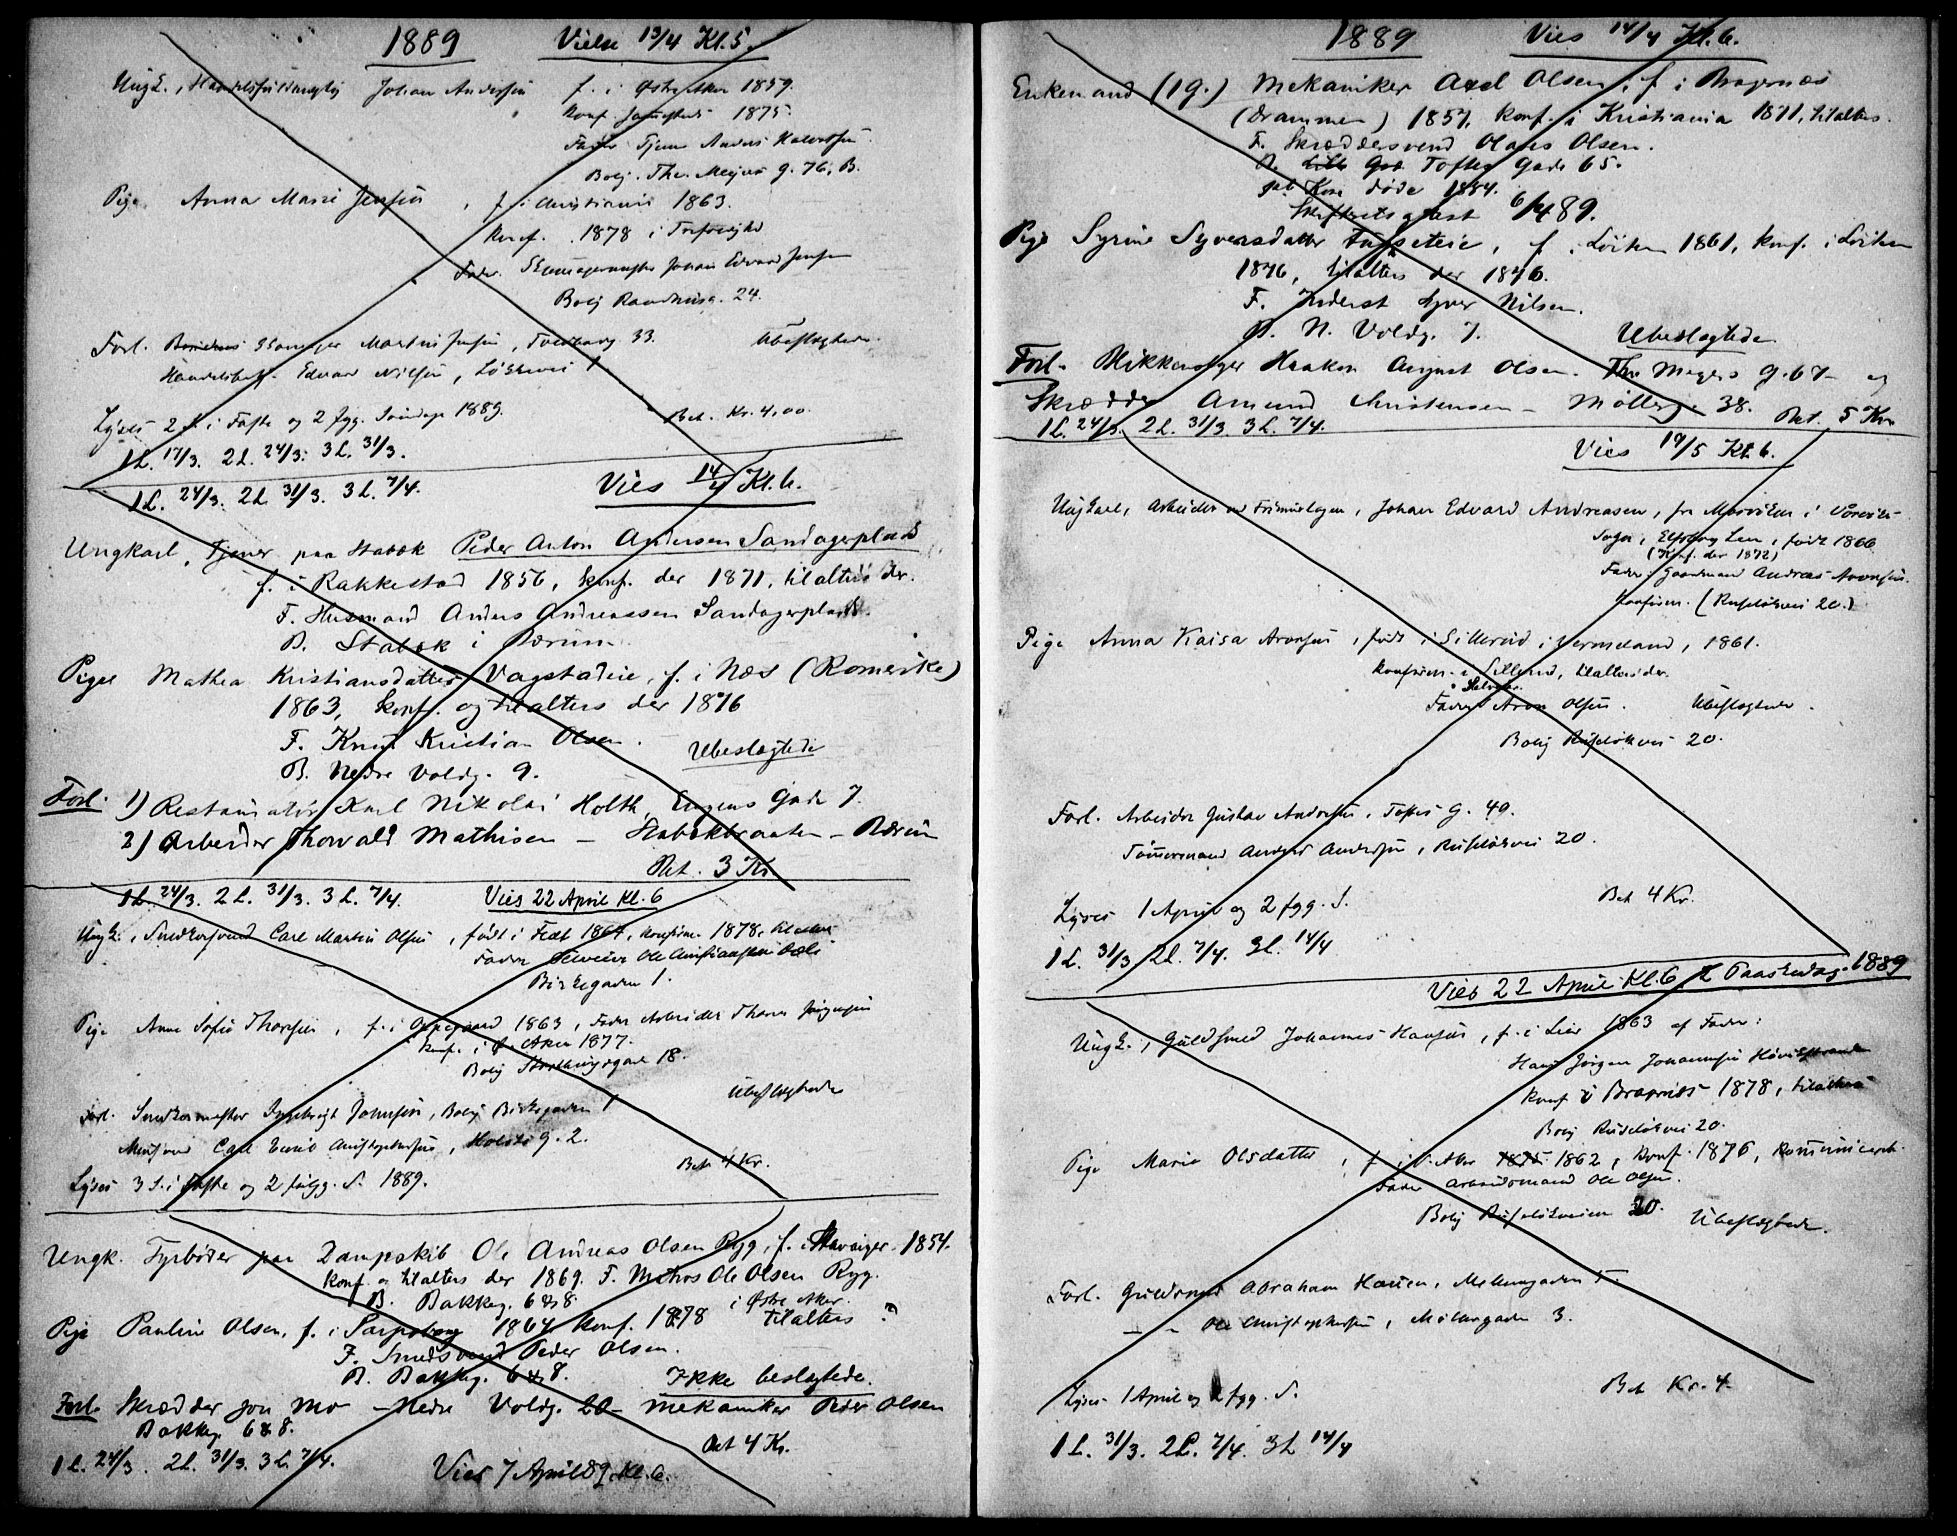 1889 Vielse 13/4 Kl. 5.
Ungk., Johan f. i 1859.
Konf. 1875.
Fader Tjener Anders Halvorsen
Bolig. Thv. Meyers g. 76, B.
Pige Anna Marie Jensen, f. i Christiania 1863.
Konf. 1878 i
Fader. Skomagermester Johan Edvard Jensen
Bolig Raadhusg. 24.
Forl. Skomager Martin Jensen, 33. Ubeslægtede.
Edvard Nilsen, 1.
Lyses 2 S. i Faste og 2 fgg. Søndage 1889. Bet. Kr. 4,00.
1 L. 17/3. 2 L. 24/3. 3 L. 31/3.
1 L. 24/3. 2 L 31/3. 3 L. 7/4. Vies 14/4 Kl. 6.
Ungkarl, Tjener paa Stabæk Peder Anton Andersen Sandagerplads
f. i Rakkestad 1856, konf. der 1871, tilalters der.
F. Husmand Anders Andreassen Sandagerplads.
B. Stabæk i Bærum.
Pige Mathea Kristiansdatter Vagstadeie, f. i Næs (Romerike)
1863, konf. og tilalters der 1876
F. Knut Kristian Olsen.
B. Nedre Voldg. 9. Ubeslægtede
Forl. 1) Restauratør Karl Nikolai Holth, Eugens Gade 7.
2) Arbeider Thorvald Mathisen – Stabækbraaten – Bærum
Bet. 3 Kr.
1 L. 24/3. 2 L. 31/3. 3 L. 7/4. Vies 22 April Kl. 6
Ungk., Snedkersvend Carl Martin Olsen, født i Fet 1864, konfirm. 1878,
Fader Ole
Birkegaden 1.
Pige Anna Sofie Thorsen, f. i Oppegaard 1863, Fader Arbeider Thorer
konf. i Ø. Aker 1877.
Bolig Storthingsgade 18.
Ubeslægtede
Forl. Snedkermester Johnsen, Bolig Birkegaden 1
Carl, Holsts g. 2.
Bet 4 Kr.
Lyses 3 S. i Faste og 2 følgg. S. 1889.
Ungk. Fyrbøder paa Dampskib Ole Andreas Olsen Ryg, f. i Stavanger 1854.
Konf. og tilalters der 1869. F. Matros Ole Olsen Ryg.
B. Bakkeg. 6 & 8.
Pige Pauline Olsen, f. i Sarpsborg 1864. konf. 1878 i Østre Aker. tilalters?
F. Smedsvend Peder Olsen.
B. Bakkeg. 6 & 8. Ikke beslægtede.
Forl. Skrædder Jon Mo – Nedre Voldg. 20 – Mekaniker Peder Olsen
Bakkeg. 6 & 8.
Bet 4 Kr.
1 L. 24/3. 2 L. 31/3. 3 L. 7/4.
Vies 7 April 89. Kl. 6.
1889 Vies 14/4 Kl. 6.
Enkemand (1 g.) Mekaniker Axel Olsen, f. i Bragernæs
(Drammen) 1857, konf. i Kristiania 1871, tilalters.
F. Skræddersvend Olaus Olsen.
B. Toftes Gade 65.
Kone døde 1884.
Skifteretsattest 6/4 89.
Pige Syrine Syversdatter, f. i Løiten 1861, konf. i Løiten
1876, tilalters der 1876.
F. Inderst Syver Nilsen.
B. N. Voldg. 7. Ubeslægtede
Forl. Blikkenslager Haakon August Olsen. Thv. Meyers g. 67 – og
Skrædder Amund Christensen – Mølleg. 38. Bet. 5 Kr
1 L. 24/3. 2 L. 31/3. 3 L. 7/4.
Vies 19/5 Kl. 6.
Ungkarl, Arbeider Johan Edvard Andreasen, fra i
Sogn, Elfsborg Len, født 1866
(Konf. der 1872)
Fader: Gaardmand Andreas
(Ruseløkvei 20.)
Pige Anna Kaisa Aronsen, født i Sillerud i Vermeland, 1861.
Konfirm. i Sillerud, tilalters der.
Fader Aron Olsen. Ubeslægtede.
Bolig Ruseløkvei 20.
Forl. Arbeider Gustav Andersen, Toftes G. 49.
Tømmermand Anders Andersen, Ruseløkvei 20.
Lyses 1 April og 2 fgg. S. Bet 4 Kr.
1 L. 31/3 2 L. 7/4. 3 L. 14/4
Vies 22 April Kl. 6 2 Paaskedag 1889
Ungk., Guldsmed Johannes Hansen, f. i Lier 1863 af Fader:
Hans Jørgen Johannesen
Konf i Bragernæs 1878, tilalters
Bolig Ruseløkvei 20.
Pige Maria Olsdatter, f. i V. Aker 1862, Konf. 1876,
Fader Arbeidsmand Ole Olsen.
Bolig Ruseløkveien 20. Ubeslægtede.
Forl. Guldsmed Abraham Hansen, Møllergaden 5.
– „ – Ole Christophersen, Møllergaden 3.
Lyses 1 April og 2 fgg. S. Bet Kr. 4.
1 L. 31/3. 2 L. 7/4. 3 L 14/4